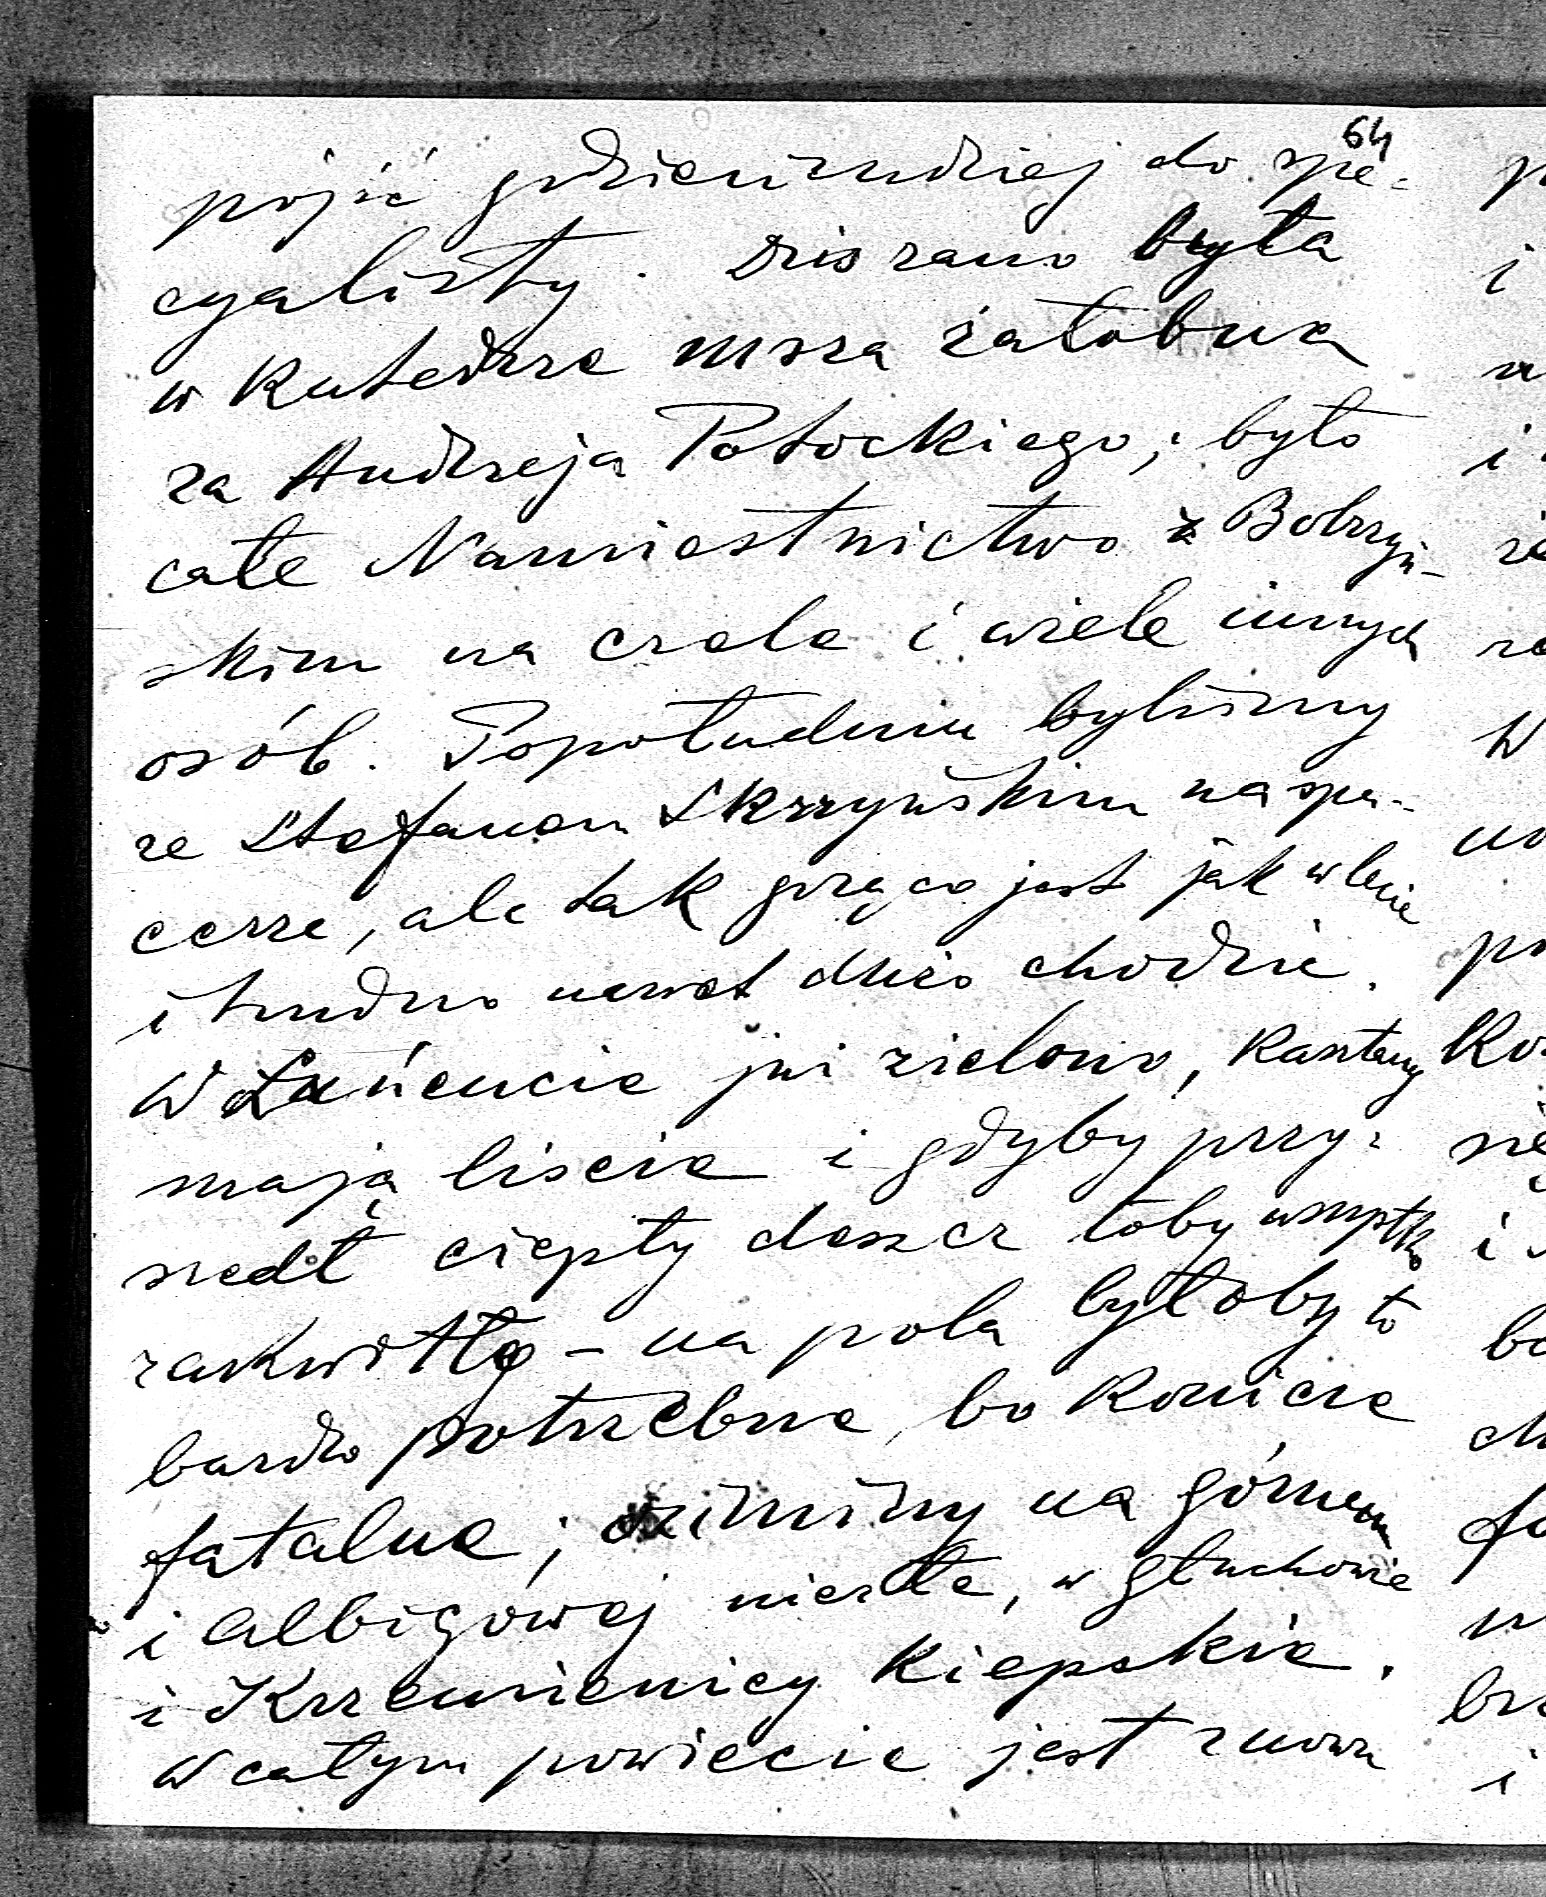 64
pójść gdzieindziej do spe-
cyalisty. Dziś rano była
w Katedrze msza żałobna
za Andrzeja Potockiego; było
całe Namiestnictwo z Bobrzyń-
skim na czele i wiele innych
osób. Popołudniu byliśmy
ze Stefanem Skrzyńskim na spa-
cerze, ale tak gorąco jest jak w lecie
i trudno nawet dużo chodzić.
W Łańcucie już zielono, kasztany
mają liście i gdyby przy-
szedł ciepły deszcz toby wszystko
zakwitło – na pola byłoby to
bardzo potrzebne, bo konicze
fatalne; oziminy na górnem
i Albigowej niezłe, w Głuchowie
i Krzemienicy kiepskie.
W całym powiecie jest znowu